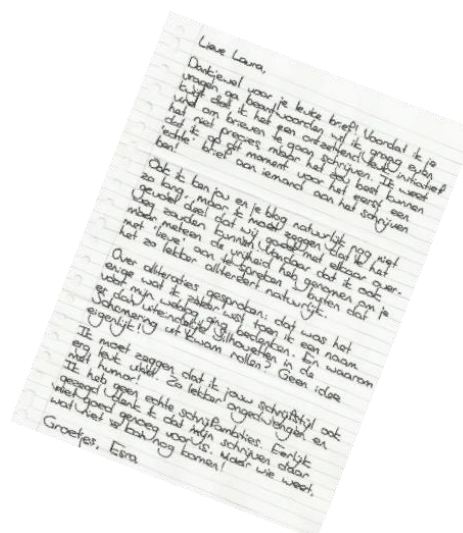 Lieve Laura,
Dankjewel voor je leuke brief! Voordat ik je
vragen ga beantwoorden wil ik graag even
kwijt dat ik het een ontzettend leuk initiatief
vind om brieven te gaan schrijven. Ik weet
het niet precies, maar het zou best kunnen
dat ik op dit moment voor het eerst een
'echte' brief aan iemand aan het schrijven
ben!
Ook ik ken jou en je blog natuurlijk nog niet
zo lang, maar ik moet zeggen dat ik het
gevoel deel dat wij goed met elkaar over-
weg zouden kunnen. Vandaar dat ik ook
maar meteen de vrijheid heb genomen om je
met 'lieve' aan te spreken. En buiten dat
het zo lekker allitereert natuurlijk.
Over alliteraties gesproken: dat was het
enige wat ik zeker wist toen ik een naam
voor mijn weblog ging bedenken. En waarom
er dan uiteindelijk Silhouetten in de
Schemering uit kwam rollen? Geen idee
eigenlijk!
Ik moet zeggen dat ik jouw schrijfstijl ook
erg leuk vind. Zo lekker ongedwongen en
met humor!
Ik heb geen echte schrijfambities. Eerlijk
gezegd denk ik dat mijn schrijven daar
niet goed genoeg voor is. Maar wie weet,
wat niet is kan nog komen!
Groetjes, Esra